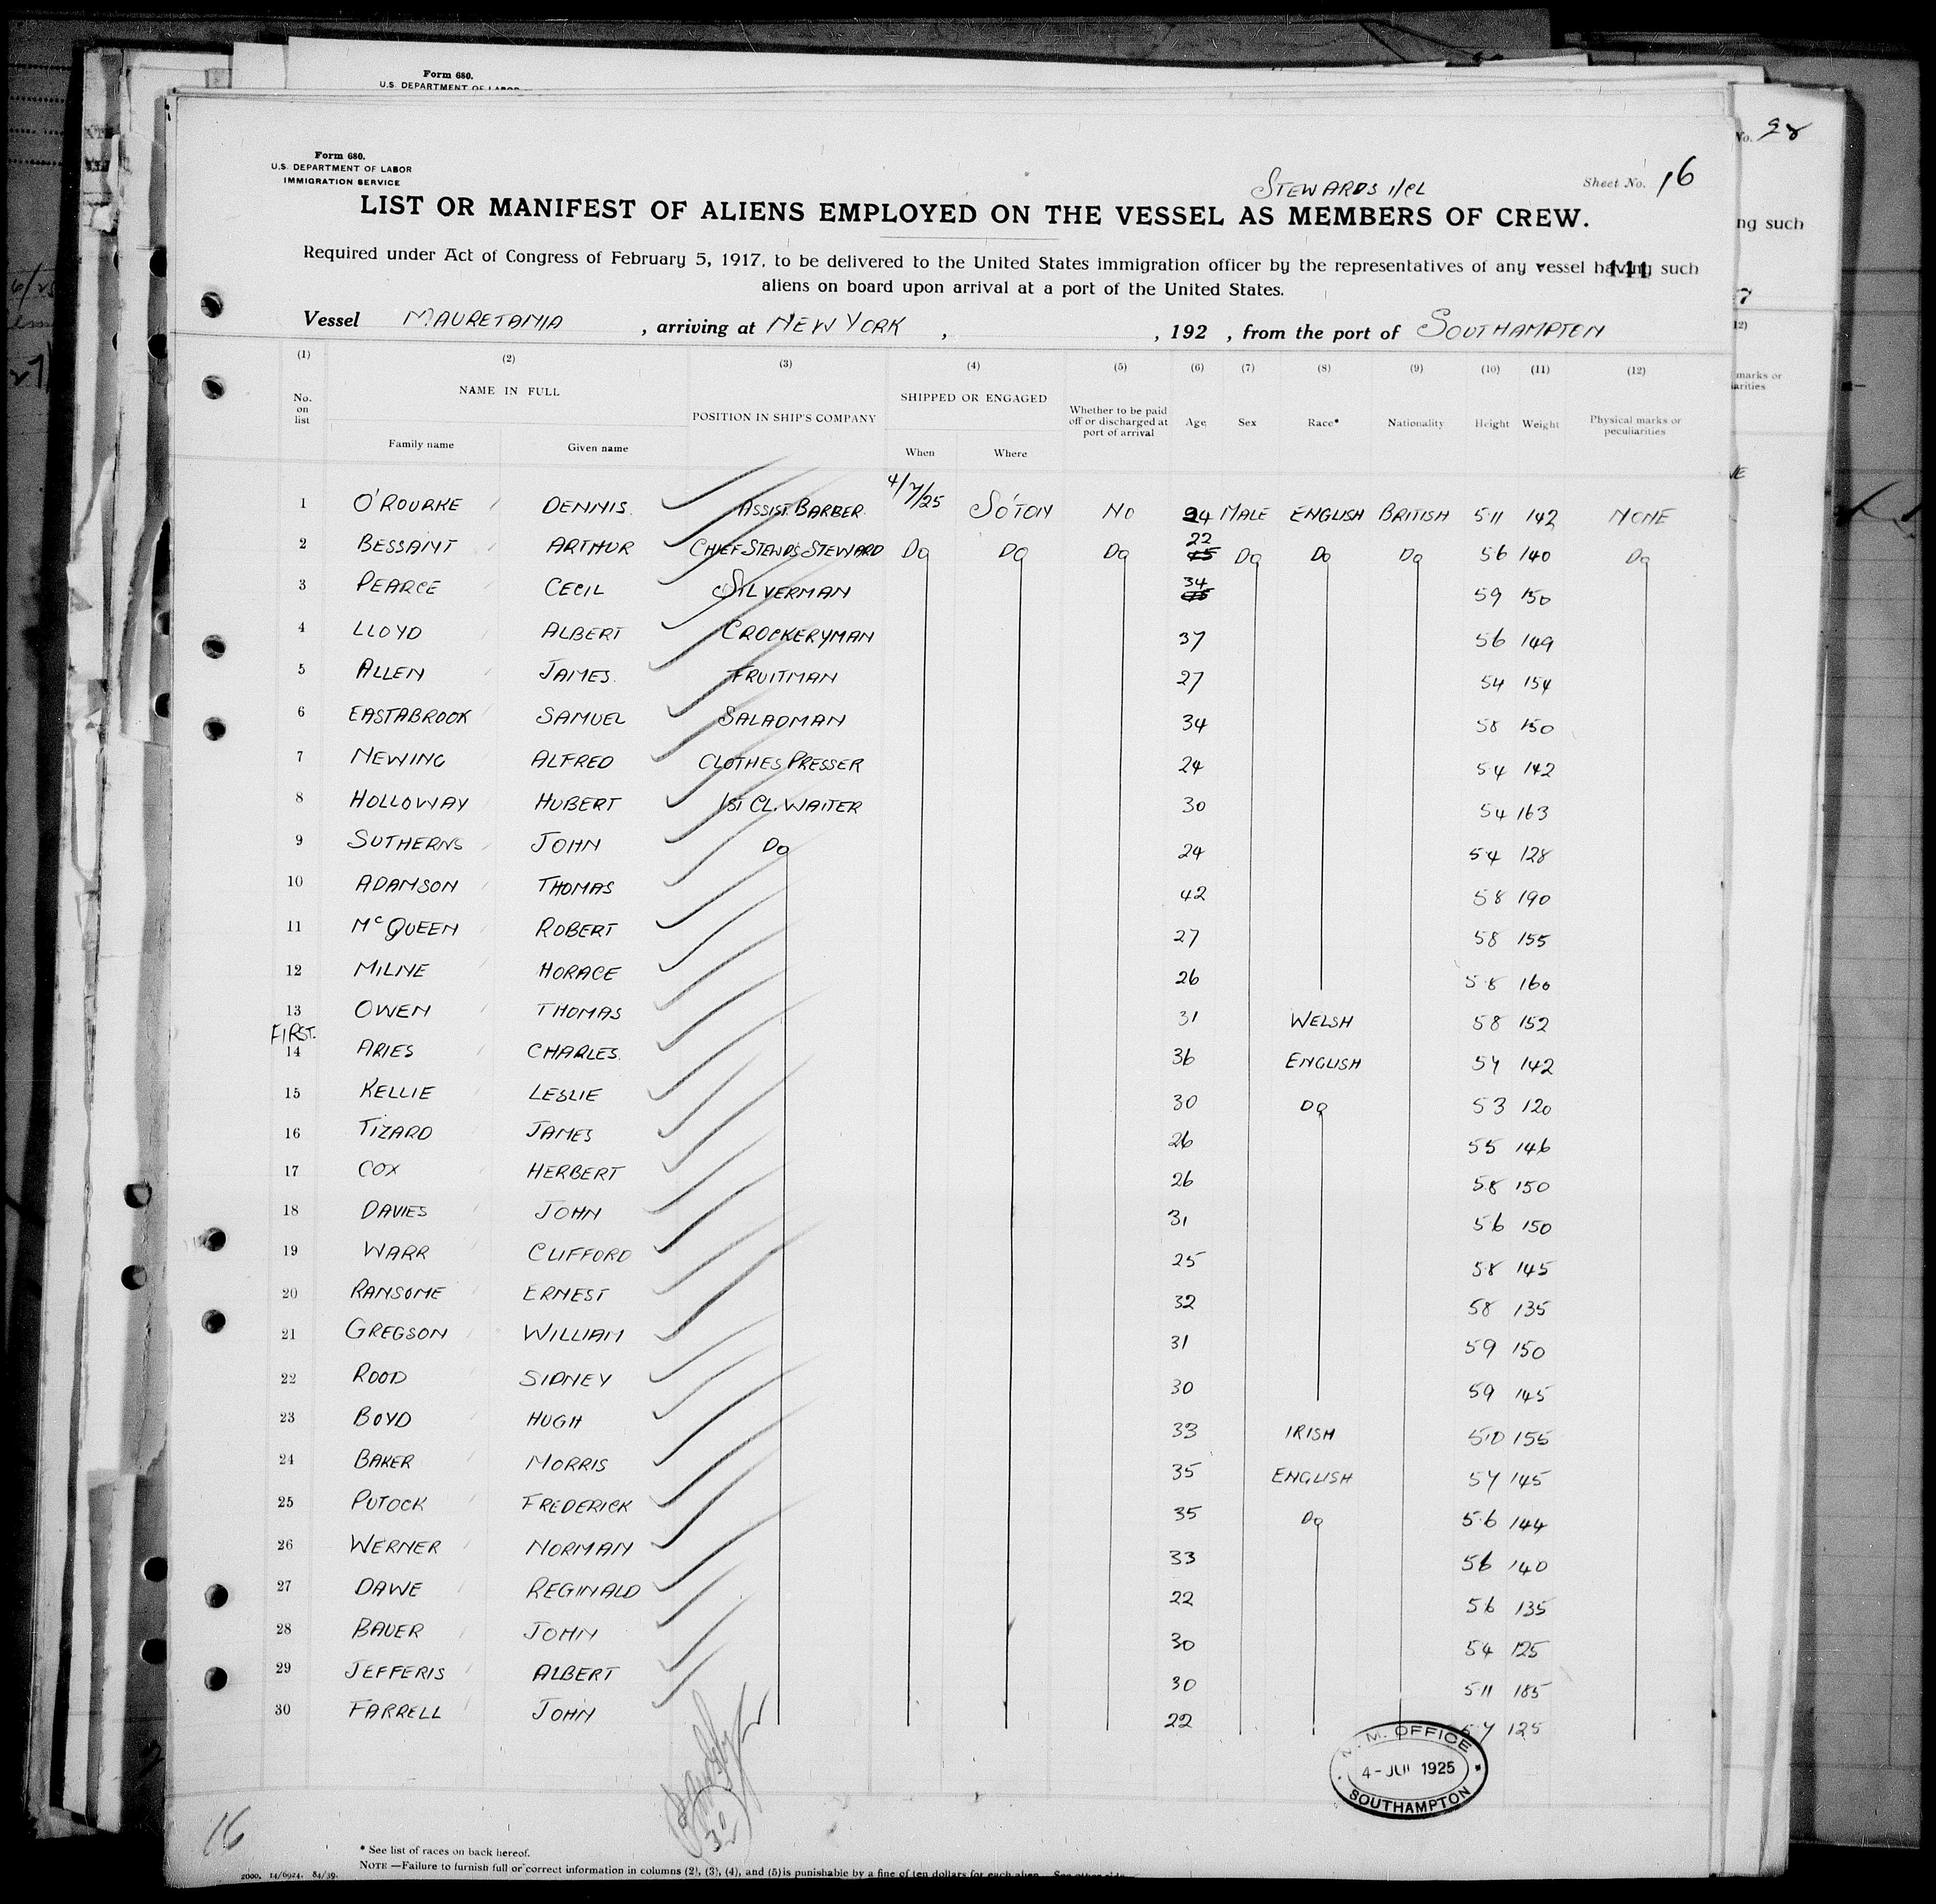 Form 680.
U.S. DEPARTMENT OF LABOR
No. 98
Form 680.
U.S. DEPARTMENT OF LABOR
IMMIGRATION SERVICE
STEWARDS 1/CL
Sheet No. 16
LIST OR MANIFEST OF ALIENS EMPLOYED ON THE VESSEL AS MEMBERS OF CREW.
ng such
Required under Act of Congress of February 5, 1917, to be delivered to the United States immigration officer by the representatives of any vessel having such
111
aliens on board upon arrival at a port of the United States.
Vessel MAURETANIA, arriving at NEW YORK, , 192 , from the port of SOUTHAMPTON
(1) (2) (3) (4) (5) (6) (7) (8) (9) (10) (11) (12)
No. on list NAME IN FULL POSITION IN SHIP'S COMPANY SHIPPED OR ENGAGED Whether to be paid off or discharged at port of arrival Age Sex Race* Nationality Height Weight Physical marks or peculiarities
Family name Given name When Where
1 O'ROURKE DENNIS. ASSIST. BARBER. 4/7/25 SO'TON NO 24 MALE ENGLISH BRITISH 5 11 142 NONE
2 BESSANT ARTHUR CHIEF STEWDS STEWARD DO DO DO 22 DO DO DO 5 6 140 DO
3 PEARCE CECIL SILVERMAN 34 5 9 150
4 LLOYD ALBERT CROCKERYMAN 37 5 6 149
5 ALLEN JAMES. FRUITMAN 27 5 4 154
6 EASTABROOK SAMUEL SALADMAN 34 5 8 150
7 NEWING ALFRED CLOTHES PRESSER 24 5 4 142
8 HOLLOWAY HUBERT 1ST CL. WAITER 30 5 4 163
9 SUTHERNS JOHN DO 24 5 4 128
10 ADAMSON THOMAS 42 5 8 190
11 McQUEEN ROBERT 27 5 8 155
12 MILNE HORACE 26 5 8 160
13 OWEN THOMAS 31 WELSH 5 8 152
FIRST.
14 ARIES CHARLES. 36 ENGLISH 5 7 142
15 KELLIE LESLIE 30 DO 5 3 120
16 TIZARD JAMES 26 5 5 146
17 COX HERBERT 26 5 8 150
18 DAVIES JOHN 31 5 6 150
19 WARR CLIFFORD 25 5 8 145
20 RANSOME ERNEST 32 5 8 135
21 GREGSON WILLIAM 31 5 9 150
22 ROOD SIDNEY 30 5 9 145
23 BOYD HUGH 33 IRISH 5 10 155
24 BAKER MORRIS 35 ENGLISH 5 7 145
25 PUTOCK FREDERICK 35 DO 5 6 144
26 WERNER NORMAN 33 5 6 140
27 DAWE REGINALD 22 5 6 135
28 BAUER JOHN 30 5 4 125
29 JEFFERIS ALBERT 30 5 11 185
30 FARRELL JOHN 22 5 7 125
M. M. OFFICE
4 - JUL 1925
SOUTHAMPTON
30
16
* See list of races on back hereof.
NOTE —Failure to furnish full or correct information in columns (2), (3), (4), and (5) is punishable by a fine of ten dollars for each alien. See other side.
2000. 14/6924. 84/39.